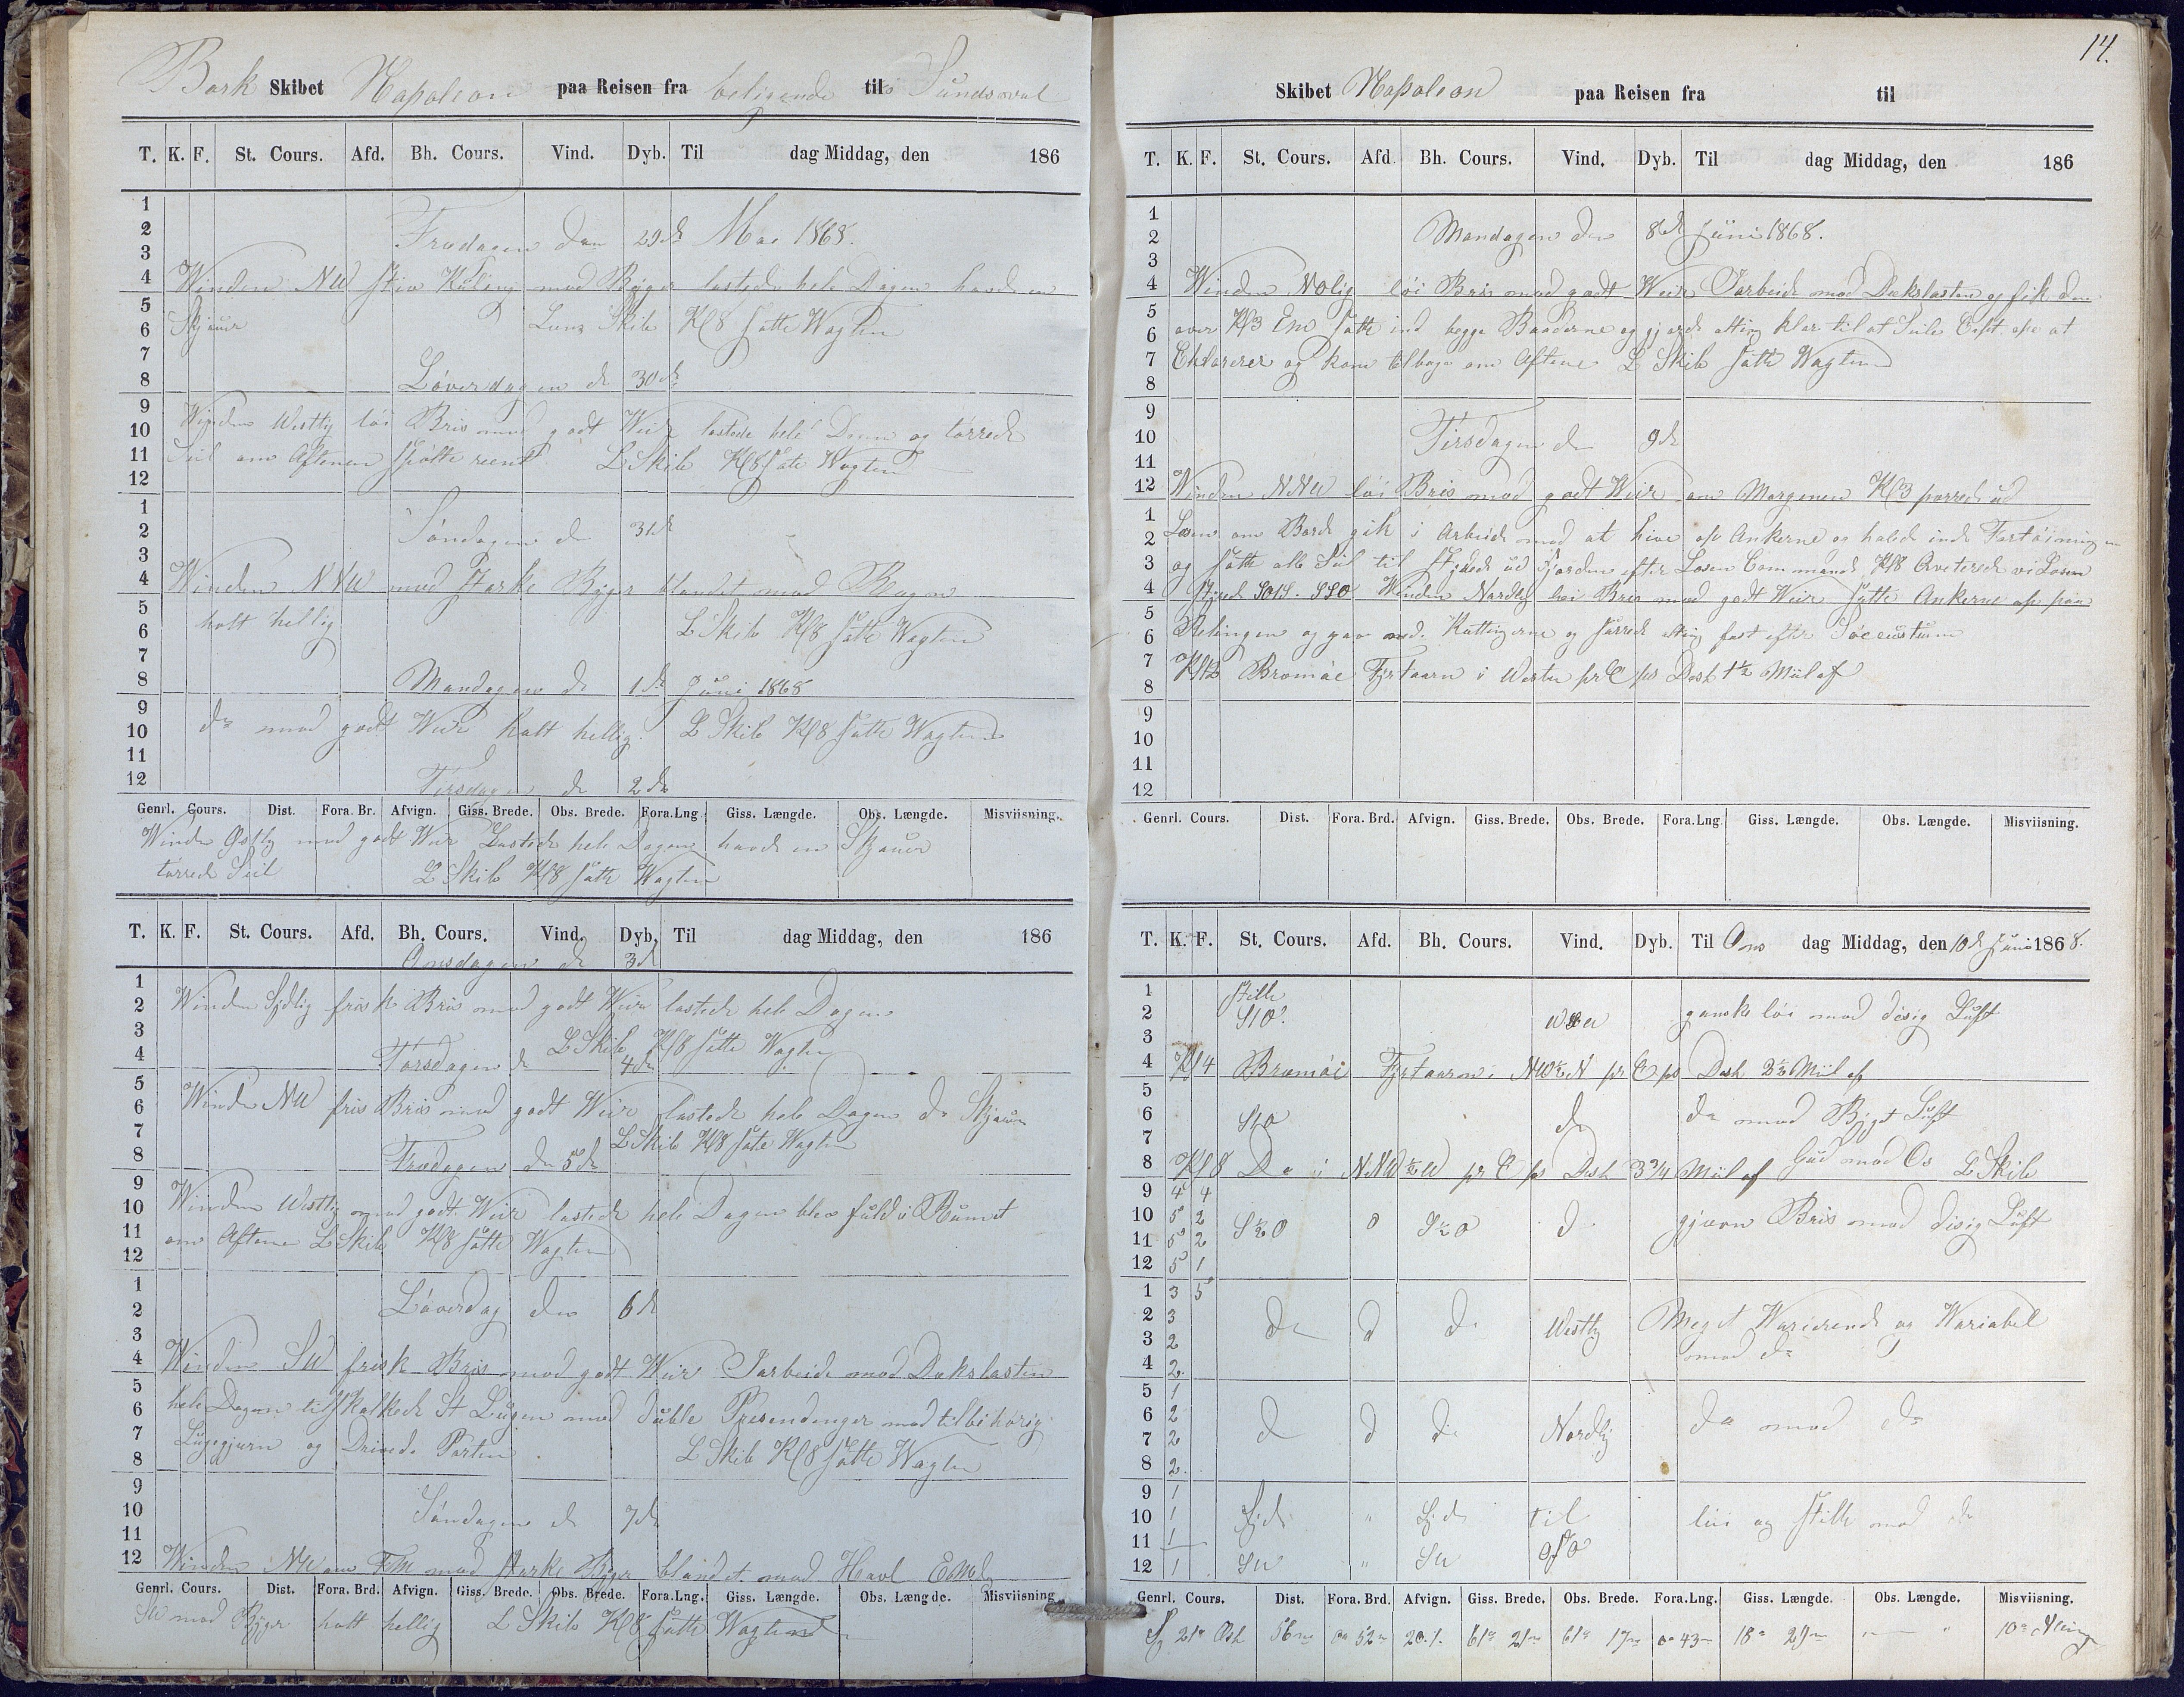 Bark Skibet Napoleon paa Reisen fra beligende til Sundsval
T. K. F. St. Cours. Afd. Bh. Cours. Vind. Dyb. Til dag Middag, den 186
Fredagen den 29de Mai 1868.
Winden NW stiv Kuling med Byger lastede hele Dagen havde en
Skjauer Lenz Skib Kl 8 satte Wagten
Löverdagen d 30de
Winden Westlig löi Bris med godt Weir lastede hele Dagen og törrede
Seil om Aftenen spölte reent L Skib Kl 8 satte Wagten
Söndagen d 31d
Winden NNW med starke Byger blandet med Regn
holt hellig L Skib Kl 8 satte Wagten
Mandagen d 1de Juni 1868
do med godt Weir holt hellig L Skib Kl 8 satte Wagten
Tirsdagen d 2de
Genrl. Cours. Dist. Fora. Br. Afvign. Giss. Brede. Obs. Brede. Fora.Lng Giss. Længde. Obs. Længde. Misviisning.
Winden Östlig med godt Weir Lastede hele Dagen havde en Skjauer
törrede Seil L Skib Kl 8 satte Wagten
T. K. F. St. Cours. Afd. Bh. Cours. Vind. Dyb. Til dag Middag, den 186
Onsdagen d 3d
Winden Sydlig frisk Bris med godt Weir lastede hele Dagen
L Skib Kl 8 satte Wagten
Torsdagen d 4de
Winden NW fris Bris med godt Weir lastede hele Dagen do Skjauer
L Skib Kl 8 satte Wagten
Fredagen den 5de
Winden Westlig med godt Weir lastede hele Dagen blev fuld i Rumet
om Aftenen L Skib Kl 8 satte Wagten
Löverdag den 6d
Winden SW frisk Bris med godt Weir I arbeide med Dækslasten
hele Dagen til skalkede St Lugen med duble Presendenger med tilbehörig
Lugejern og Drivede Porten L Skib Kl 8 satte Wagten
Söndagen d 7de
Winden NW om FM med starke Byger blandet med Havl EMd
Genrl. Cours. Dist. Fora. Brd. Afvign. Giss. Brede. Obs. Brede. Fora.Lng. Giss. Længde. Obs. Længde. Misviisning
SW med Byger holt hellig L Skib Kl 8 satte Wagten
14.
Skibet Napoleon paa Reisen fra til
T. K. F. St. Cours. Afd. Bh. Cours. Vind. Dyb. Til dag Middag, den 186
Mandagen den 8de Juni 1868.
Winden Nolig löi Bris med godt Weir I arbeide med Dækslasten og fik den
over Kl 3 Em satte ind begge Baaderne og gjorde alting klar til at Seile Capt ope at
Eklarerer og kom tilbage om Aftene L Skib satte Wagten
Tirsdagen den 9de
Winden NNW löi Bris med godt Weir om Morgenen Kl 3 purrede ud
Losen om Bord gik i Arbeide med at hive op Ankerne og halede inde Fortöiningen
og satte alle Seil til styrede ud Fjorden efter Losen Commando Kl 8 Qveterede vi Losen
styrede SOtS. SSO Winden Nordlig löi Bris med godt Weir sytte Ankerne op paa
Relingen og gav ned. Kættingerne og surrede alting fast efter Söecustume
Kl 12 Bromöe Fyrtaarn i Westen pr C ps Desk 1½ Miil af
Genrl. Cours. Dist. Fora. Brd. Afvign. Giss. Brede. Obs. Brede. Fora.Lng. Giss. Længde. Obs. Længde. Misviisning.
T. K. F. St. Cours. Afd. Bh. Cours. Vind. Dyb. Til Ons dag Middag, den 10d Juni 1868.
stille
StO. ganske löi med disig Luft
Kl 4 Bromöe Fyrtaarn i NW½N pr C ps Desk 2½ Miil af
StO do do med Bygt Luft
Kl 8 Do i NNW½W pr C ps Desk 3¾ Miil af Gud med Os L Skib
9 4 4
10 5 2 S½O 0 S½O d gjævn Bris med disig Luft
11 5 2
12 5 1
1 3 5
2 3 do d do Westlig Meget Warierende og Wariabel
3 2 med do
4 2
5 1
6 2 d d do Nordlig do med do
7 2
8 2
9 1
10 1 Syd " Syd til löi og stille med do
11 1
12 1 SW " SW OSO
Genrl. Cours. Dist. Fora. Brd. Afvign. Giss. Brede. Obs. Brede. Fora.Lng. Giss. Længde. Obs. Længde. Misviisning.
S 21° Ost 56m 0° 52m 20.1. 61° 21m 61° 17m 0° 43m 18° 29m " — " 10°